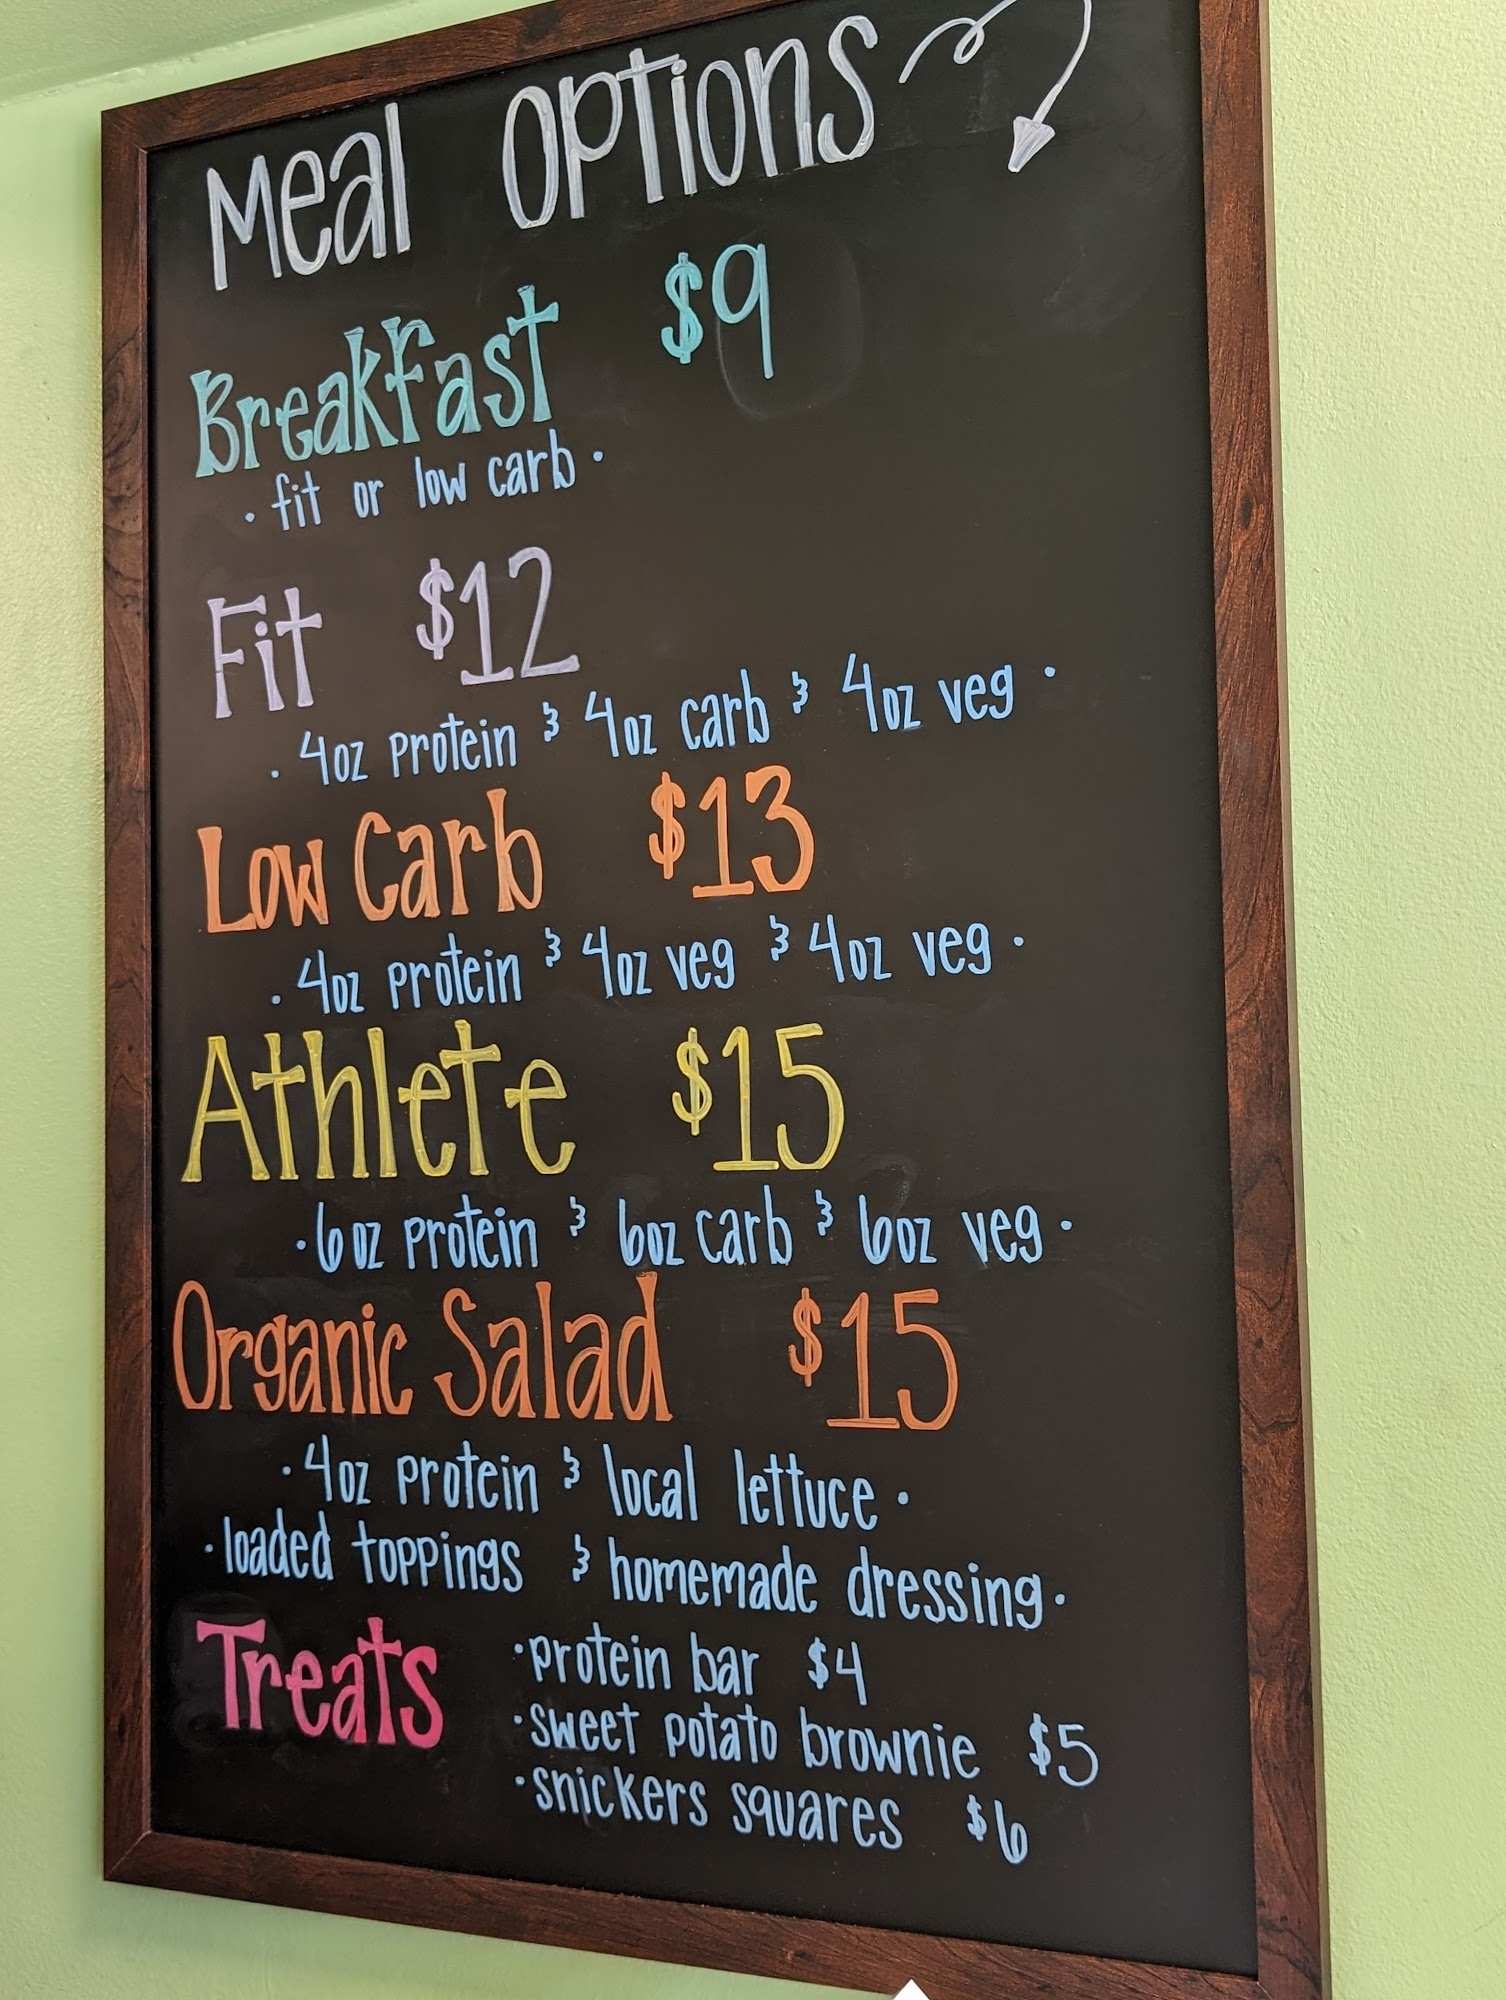 Meal Options
Breakfast $9
· fit or low carb ·
Fit $12
· 4oz protein & 4oz carb & 4oz veg ·
Low Carb $13
· 4oz protein & 4oz veg & 4oz veg ·
Athlete $15
· 6oz protein & 6oz carb & 6oz veg ·
Organic Salad $15
· 4oz protein & local lettuce ·
· loaded toppings & homemade dressing ·
Treats
· protein bar $4
· sweet potato brownie $5
· snickers squares $6